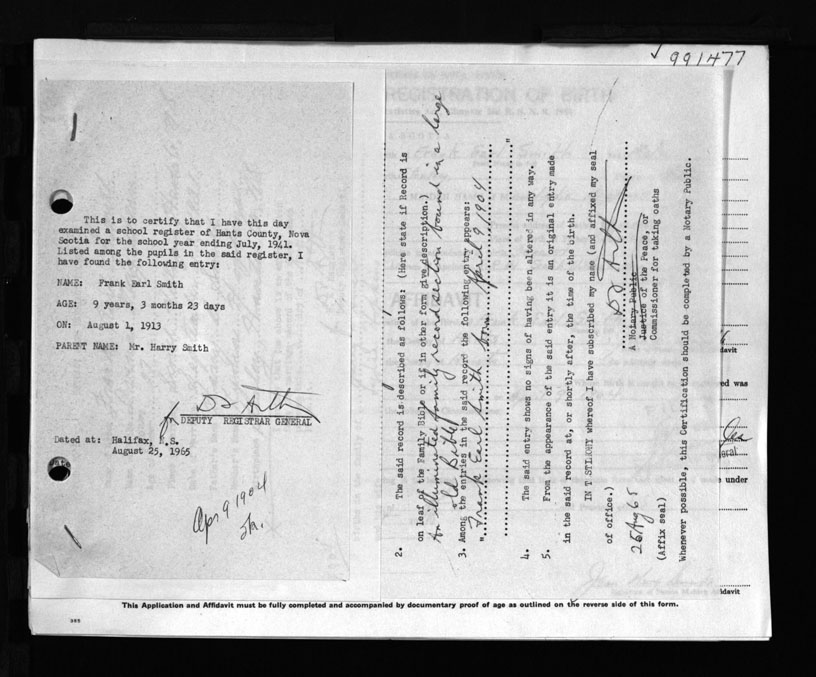 991477
This is to certify that I have this day
examined a school register of Hants County, Nova
Scotia for the school year ending July, 1941.
Listed among the pupils in the said register, I
have found the following entry:
NAME: Frank Earl Smith
AGE: 9 years, 3 months 23 days
ON: August 1, 1913
PARENT NAME: Mr. Harry Smith
for
DEPUTY REGISTRAR GENERAL
Dated at: Halifax, N.S.
August 25, 1965
Apr 9 1904
2. The said record is described as follows: (Here state if Record is
on leaf of the Family Bible or if in other form give description.)
An illuminated family record section found in a large
old Bible
3. Among the entries in the said record the following entry appears:
"Frank Earl Smith Born April 9 1904
"
4. The said entry shows no signs of having been altered in any way.
5. From the appearance of the said entry it is an original entry made
in the said record at, or shortly after, the time of the birth.
IN T STIMONY whereof I have subscribed my name (and affixed my seal
of office.)
A Notary Public
Justice of the Peace, or
Commissioner for taking oaths
26 Aug 65
(Affix seal)
Whenever possible, this Certification should be completed by a Notary Public.
REGISTRATION OF BIRTH
AFFIDAVIT
davit
ed was
eral
under
davit
This Application and Affidavit must be fully completed and accompanied by documentary proof of age as outlined on the reverse side of this form.